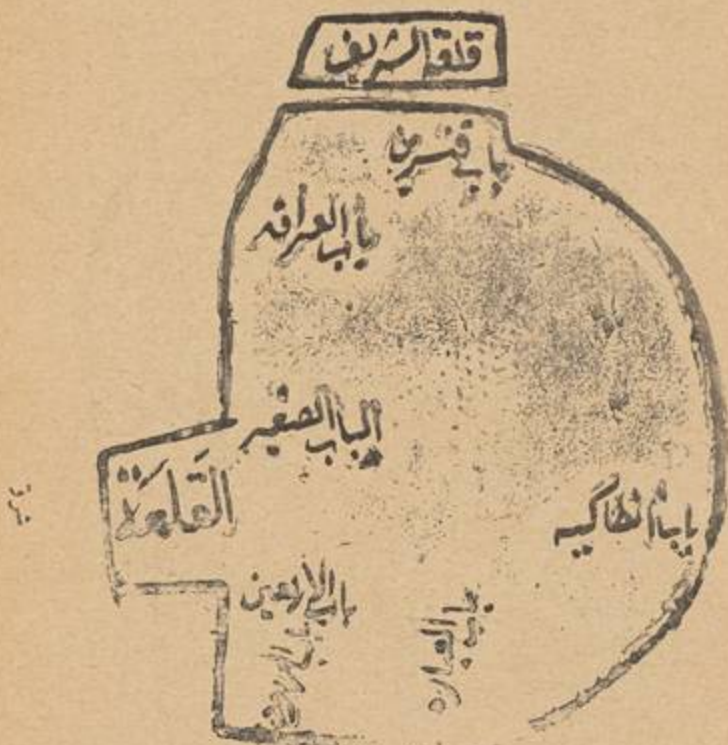 قلعة الشريف
باب قنسرين
باب العراق
الباب الصغير
القَلعَة
باب انطاكيه
باب الاربعين
باب العباره
شرق